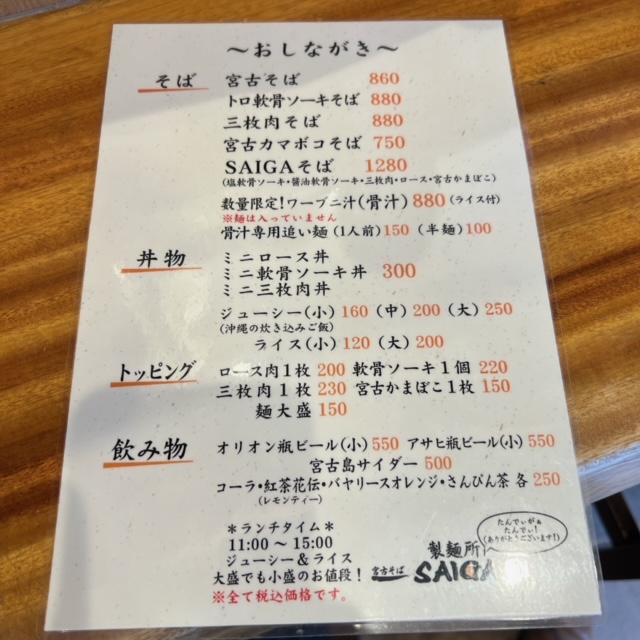 ～おしながき～
そば 宮古そば 860
トロ軟骨ソーキそば 880
三枚肉そば 880
宮古カマボコそば 750
SAIGAそば 1280
(塩軟骨ソーキ・醤油軟骨ソーキ・三枚肉・ロース・宮古かまぼこ)
数量限定!ワーブニ汁(骨汁) 880 (ライス付)
※麺は入っていません
骨汁専用追い麺 (1人前) 150 (半麺) 100
丼物 ミニロース丼
ミニ軟骨ソーキ丼 300
ミニ三枚肉丼
ジューシー(小) 160 (中) 200 (大) 250
(沖縄の炊き込みご飯)
ライス(小) 120 (大) 200
トッピング ロース肉1枚 200 軟骨ソーキ1個 220
三枚肉1枚 230 宮古かまぼこ1枚 150
麺大盛 150
飲み物 オリオン瓶ビール(小) 550 アサヒ瓶ビール(小) 550
宮古島サイダー 500
コーラ・紅茶花伝・バヤリースオレンジ・さんぴん茶 各 250
(レモンティー)
＊ランチタイム＊
11:00～15:00
ジューシー＆ライス
大盛でも小盛のお値段!
※全て税込価格です。
たんでぃがぁ
たんでぃ!
(ありがとうございます!)
製麺所
宮古そば SAIGA